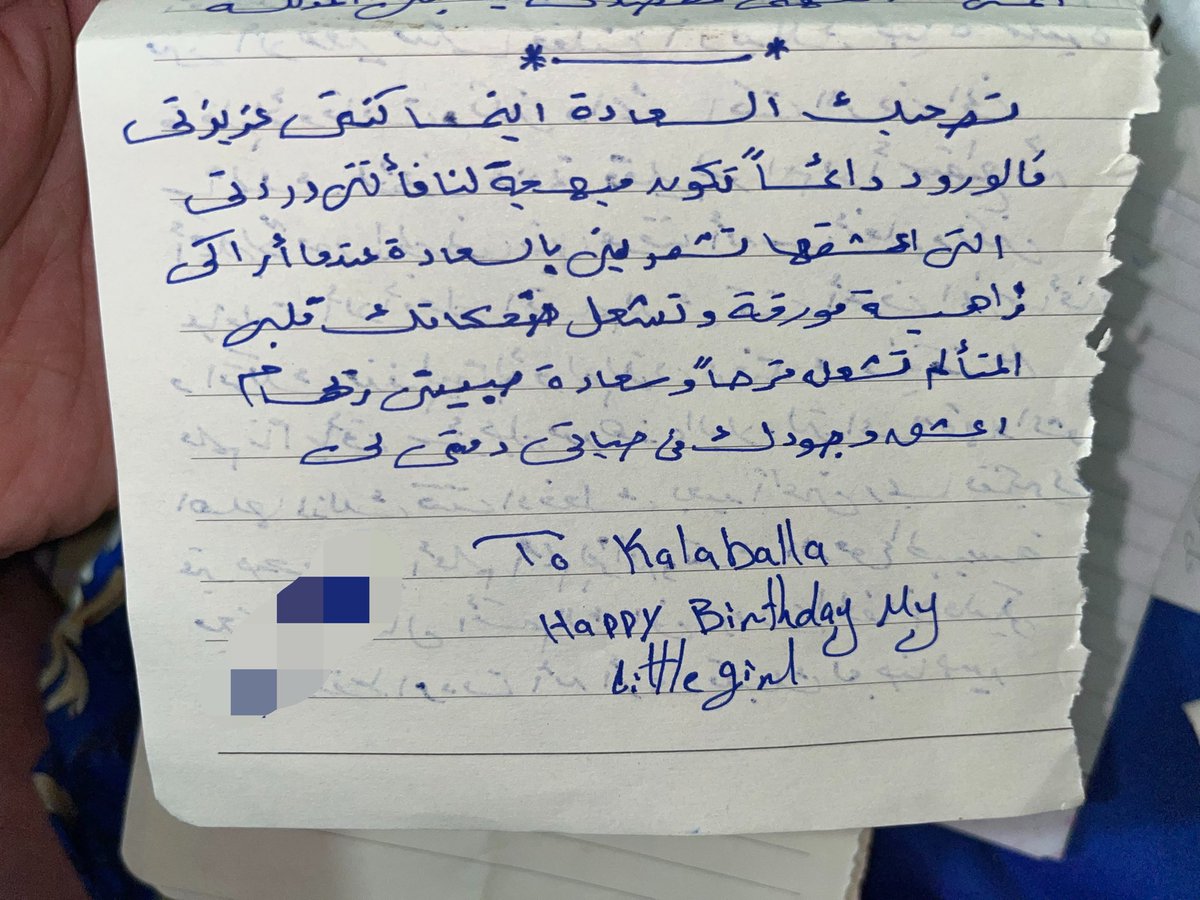 تصحبك السعادة اينما كنتى عزيزتى
فالورود دائماً تكون مبهجة لنا فأنتى وردتى
التى اعشقها تشعريني بالسعادة عندما أراكى
زاهية مورقة وتشعل ضحكاتك قلبى
المتألم تشعله فرحاً وسعادة حبيبتى
اعشق وجودك فى حياتى دمتى لى
To Kalaballa
Happy Birthday My
little girl